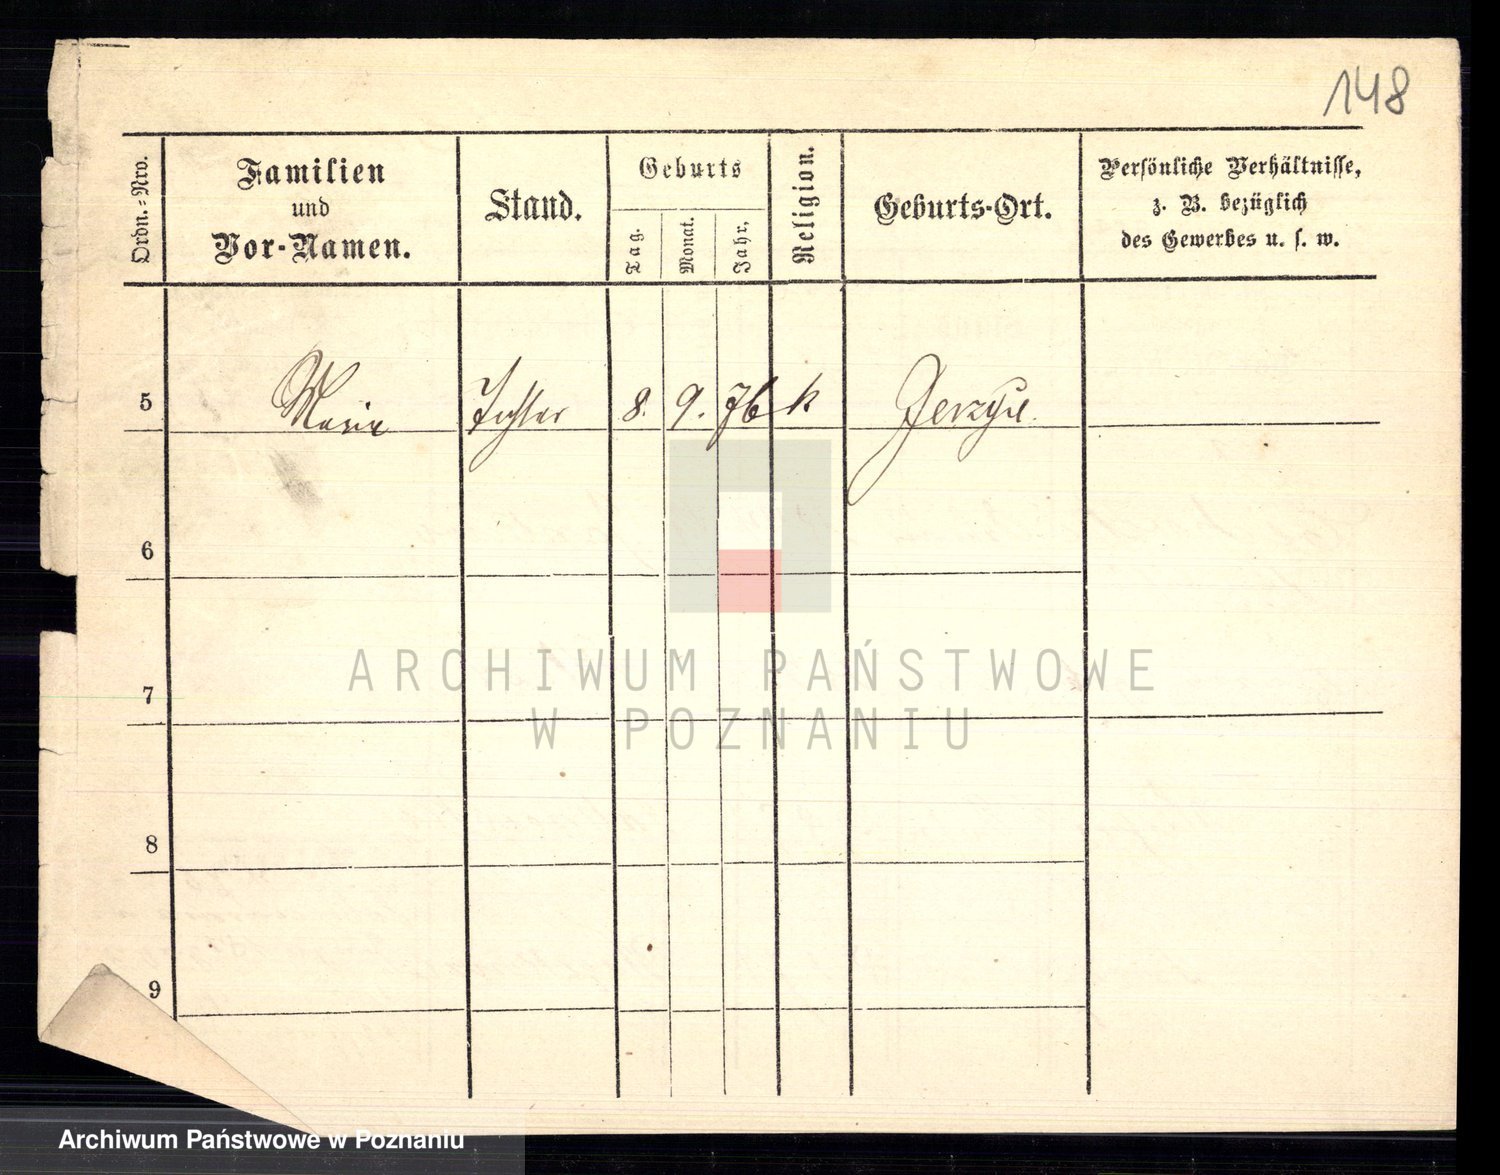 148
Ordn.-Nro.
Familien
und
Vor-Namen.
Stand.
Geburts
Tag.
Monat.
Jahr.
Religion.
Geburts-Ort.
Persönliche Verhältnisse,
z. B. bezüglich
des Gewerbes u. s. w.
5 Marie Tochter 8. 9. 76 k Jerzyce
6
7
8
9
ARCHIWUM PAŃSTWOWE
W POZNANIU
Archiwum Państwowe w Poznaniu